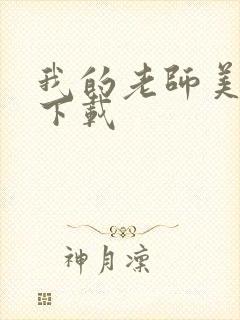 我的老師美
下載
神月凜